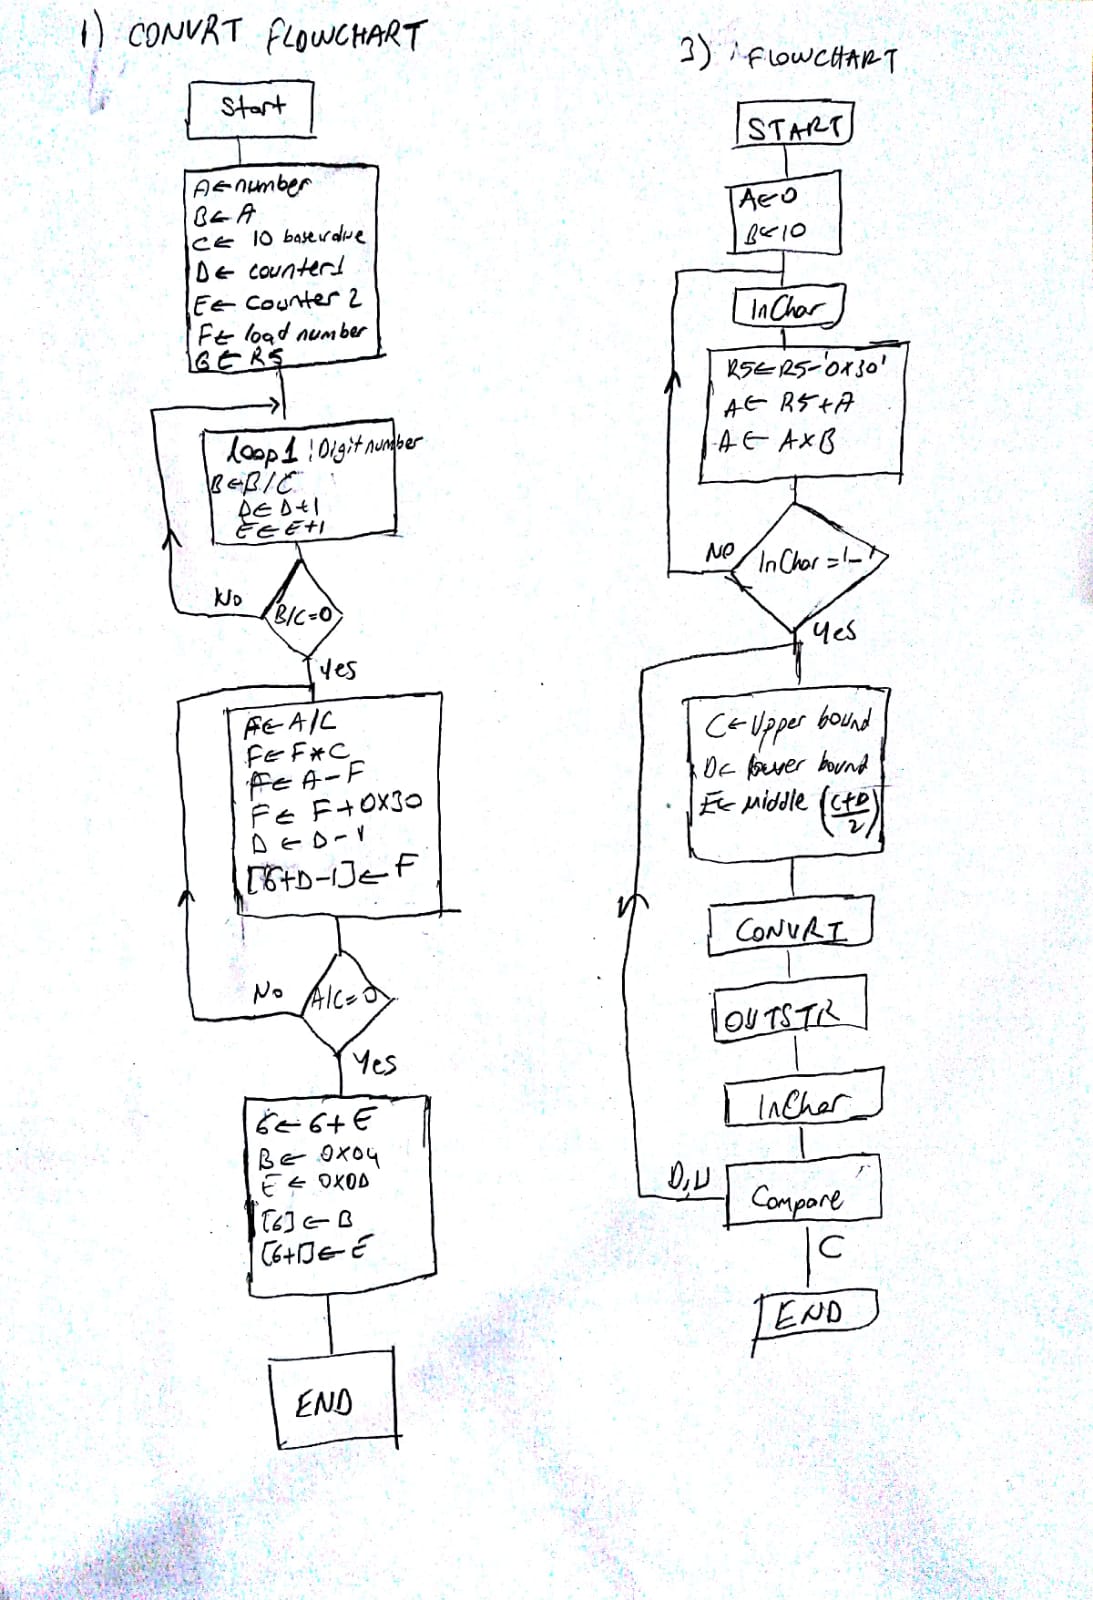 1) CONVRT FLOWCHART
Start
A← number
B← A
C← 10 base value
D← counter1
E← counter 2
F← load number
G← R5
loop1 : Digit number
B←B/C
D← D+1
E← E+1
No
B/C=0
Yes
F← A/C
F← F*C
F← A-F
F← F+0x30
D← D-1
[G+D-1]← F
No
A/C=0
Yes
G← G+E
B← 0x04
E← 0x0D
[G]← B
[G+1]← E
END
3) FLOWCHART
START
A←0
B←10
InChar
R5←R5-'0x30'
A← R5+A
A← AxB
NO
InChar =
Yes
C← Upper bound
D← lower bound
E← Middle (C+D/2)
CONVRT
OUTSTR
InChar
D,U
Compare
C
END